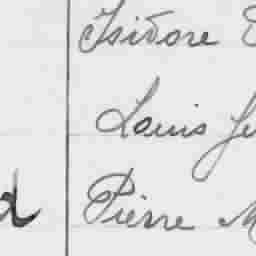 Isidore
Louis
Pierre M